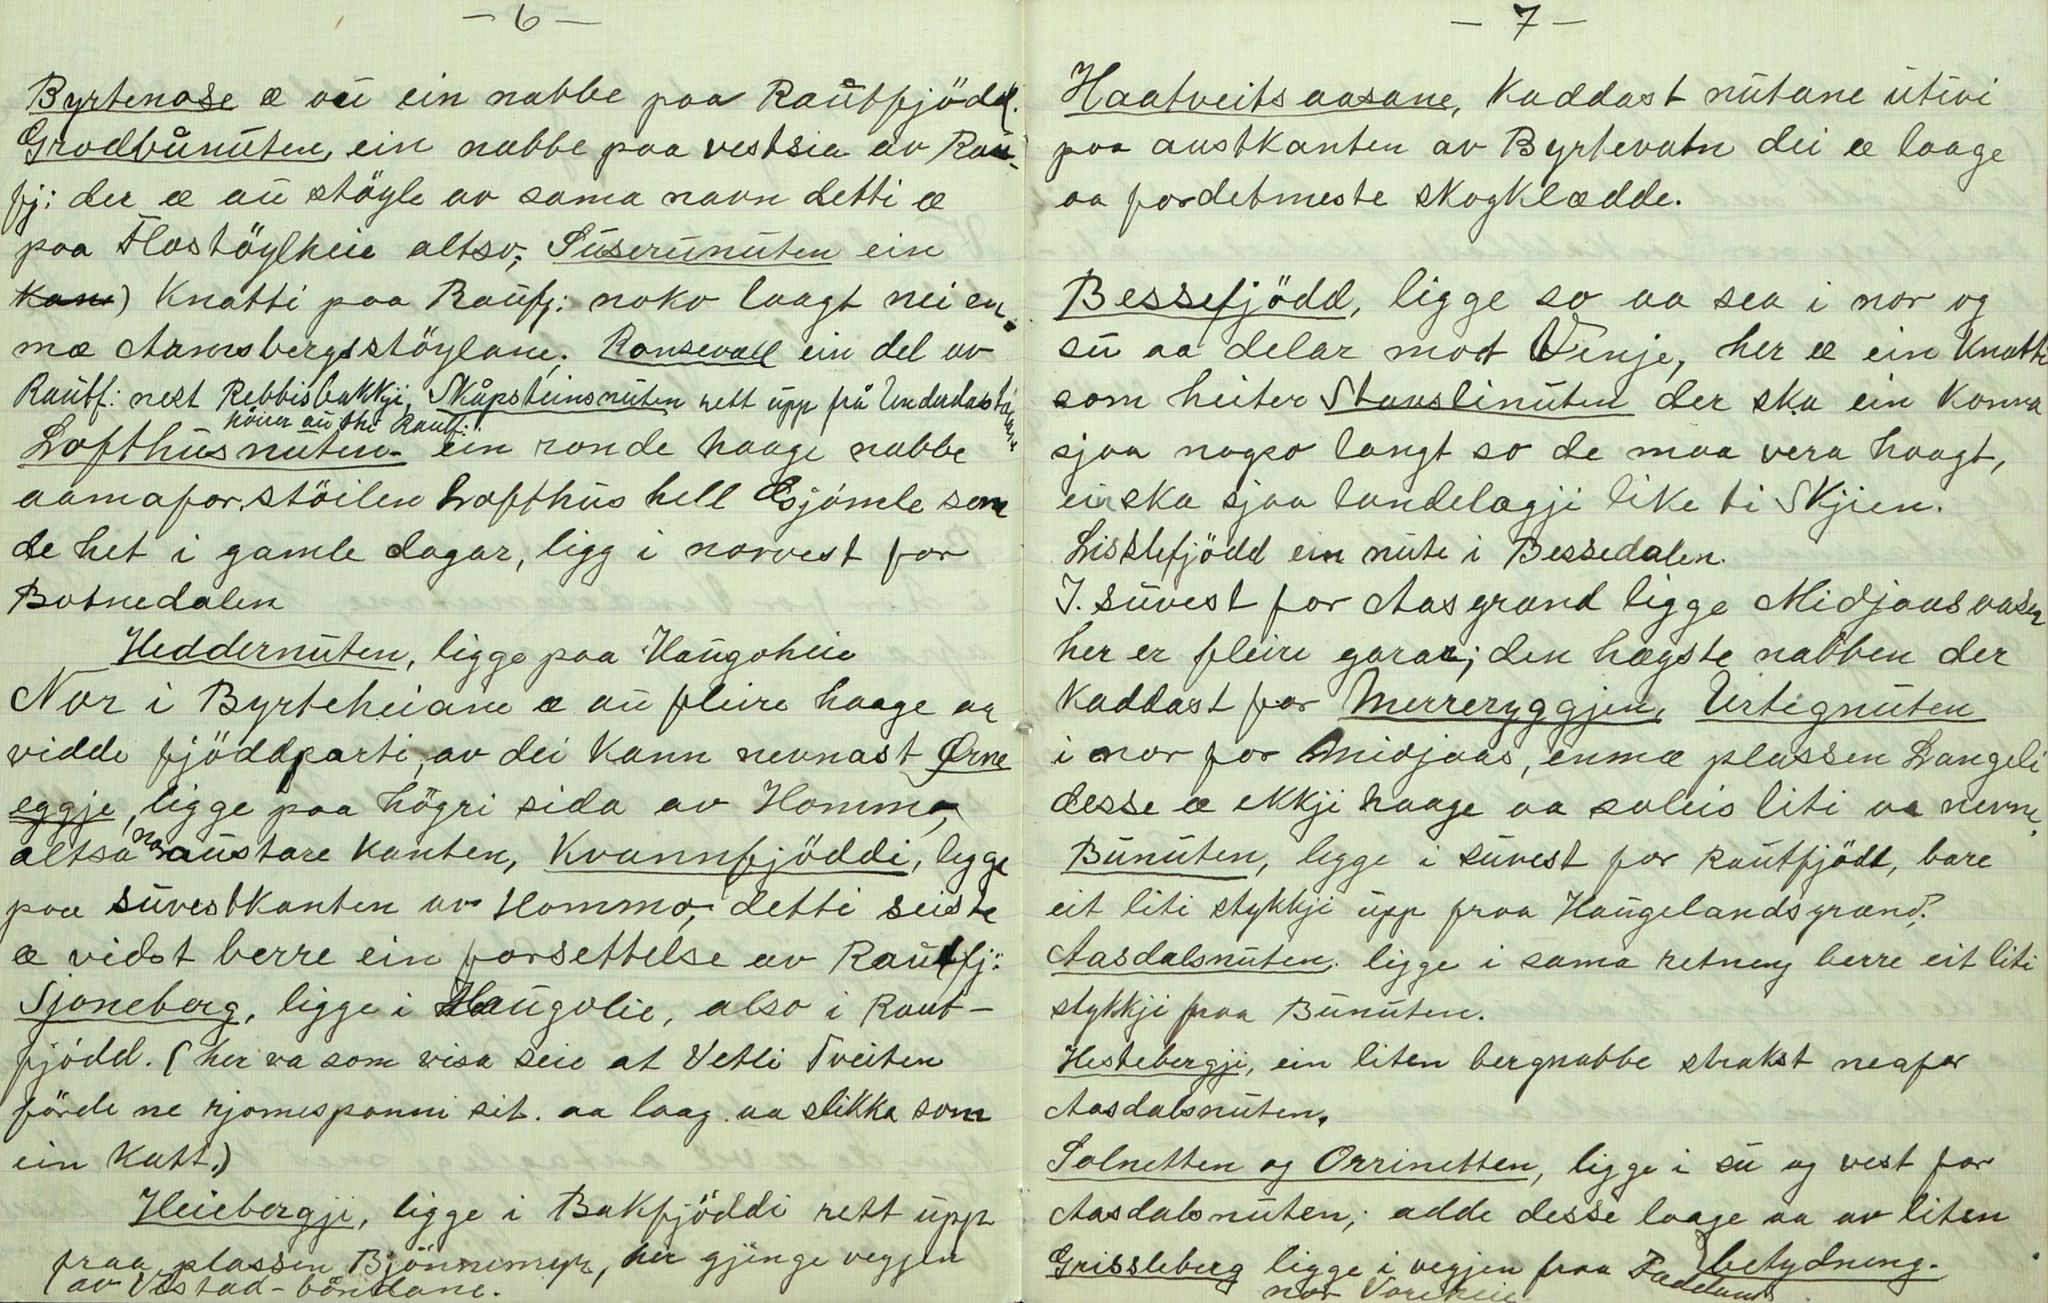 — 6 —
Byrtenose æ au ein nabbe paa Rautfjödd.
Grodbånuten, ein nabbe paa vestsia av Rau-
fj: der æ au stöyle av sama navn detti æ
paa Flostöylheie altso; Suserunuten ein
Knatti paa Raufj: noko laagt nei en
mæ Armsbergsstöylane. Ronsevall ein del av
Rautf: nest Rebbisbakkji, Skåpsteinsnuten rett upp frå
höier au shi Rautf:
Lofthusnuten ein ronde haage nabbe
aamafor stöilen Lofthus hell Æsjömle som
de het i gamle dagar, ligg i norvest for
Botnedalen
Heddernuten, ligge paa Haugoheie
Nor i Byrteheiane æ au fleire haage aa
vidde fjöddparti, av dei kann nevnast Ørne
eggje, ligge paa högri sida av Hommo,
altsa noraustare kanten, Kvannfjöddi, ligge
paa suvestkanten av Hommo, detti seiste
æ vidst berre ein forsettelse av Rautfj:
Sjoneberg, ligge i Haugolie, also i Raut-
fjödd. (her va som visa seie at Vetli Tveiten
förde ne rjomesponni sit. aa laag aa slikka som
ein Katt.)
Heiebergji, ligge i Bakfjöddi rett upp
fraa plassen Bjönnemyr, her gjenge veggjen
av Vistad-böndane.
— 7 —
Haatveitsaasane, Kaddast nutane utivi
paa austkanten av Byrtevatn dei æ laage
aa fordetmeste skogklædde.
Bessefjödd, ligge so aa sea i nor og
su aa delar mot Vinje, her æ ein Knatti
som heiter Stauslinuten der ska ein Konna
sjaa nogso langt so de maa vera haagt,
ein ska sjaa landelægji like ti Skjien.
Lislefjödd ein nute i Bessedalen.
I. suvest for Aasgrand ligge Midjaasaasen
her er fleire garar; den hægste nabben der
Kaddast for Merreryggjen, Urtignuten
i nor for Midjaas, enmæ plassen Langeli
desse æ ekkji haage aa soleis liti aa nevne.
Bunuten, ligge i suvest for Rautfjödd, bare
eit liti stykkji upp fraa Haugelandsgrand.
Aasdalsnuten, ligge i sama retning berre eit liti
stykkji fraa Bunuten.
Hestebergji, ein liten bergnabbe strakst neafor
Aasdalsnuten.
Solnetten og Orrinetten, ligge i su og vest for
Aasdalsnuten; adde desse laage aa av liten
betydning.
Grissleberg ligge i vegjen fraa Faddland
nor Voreheie